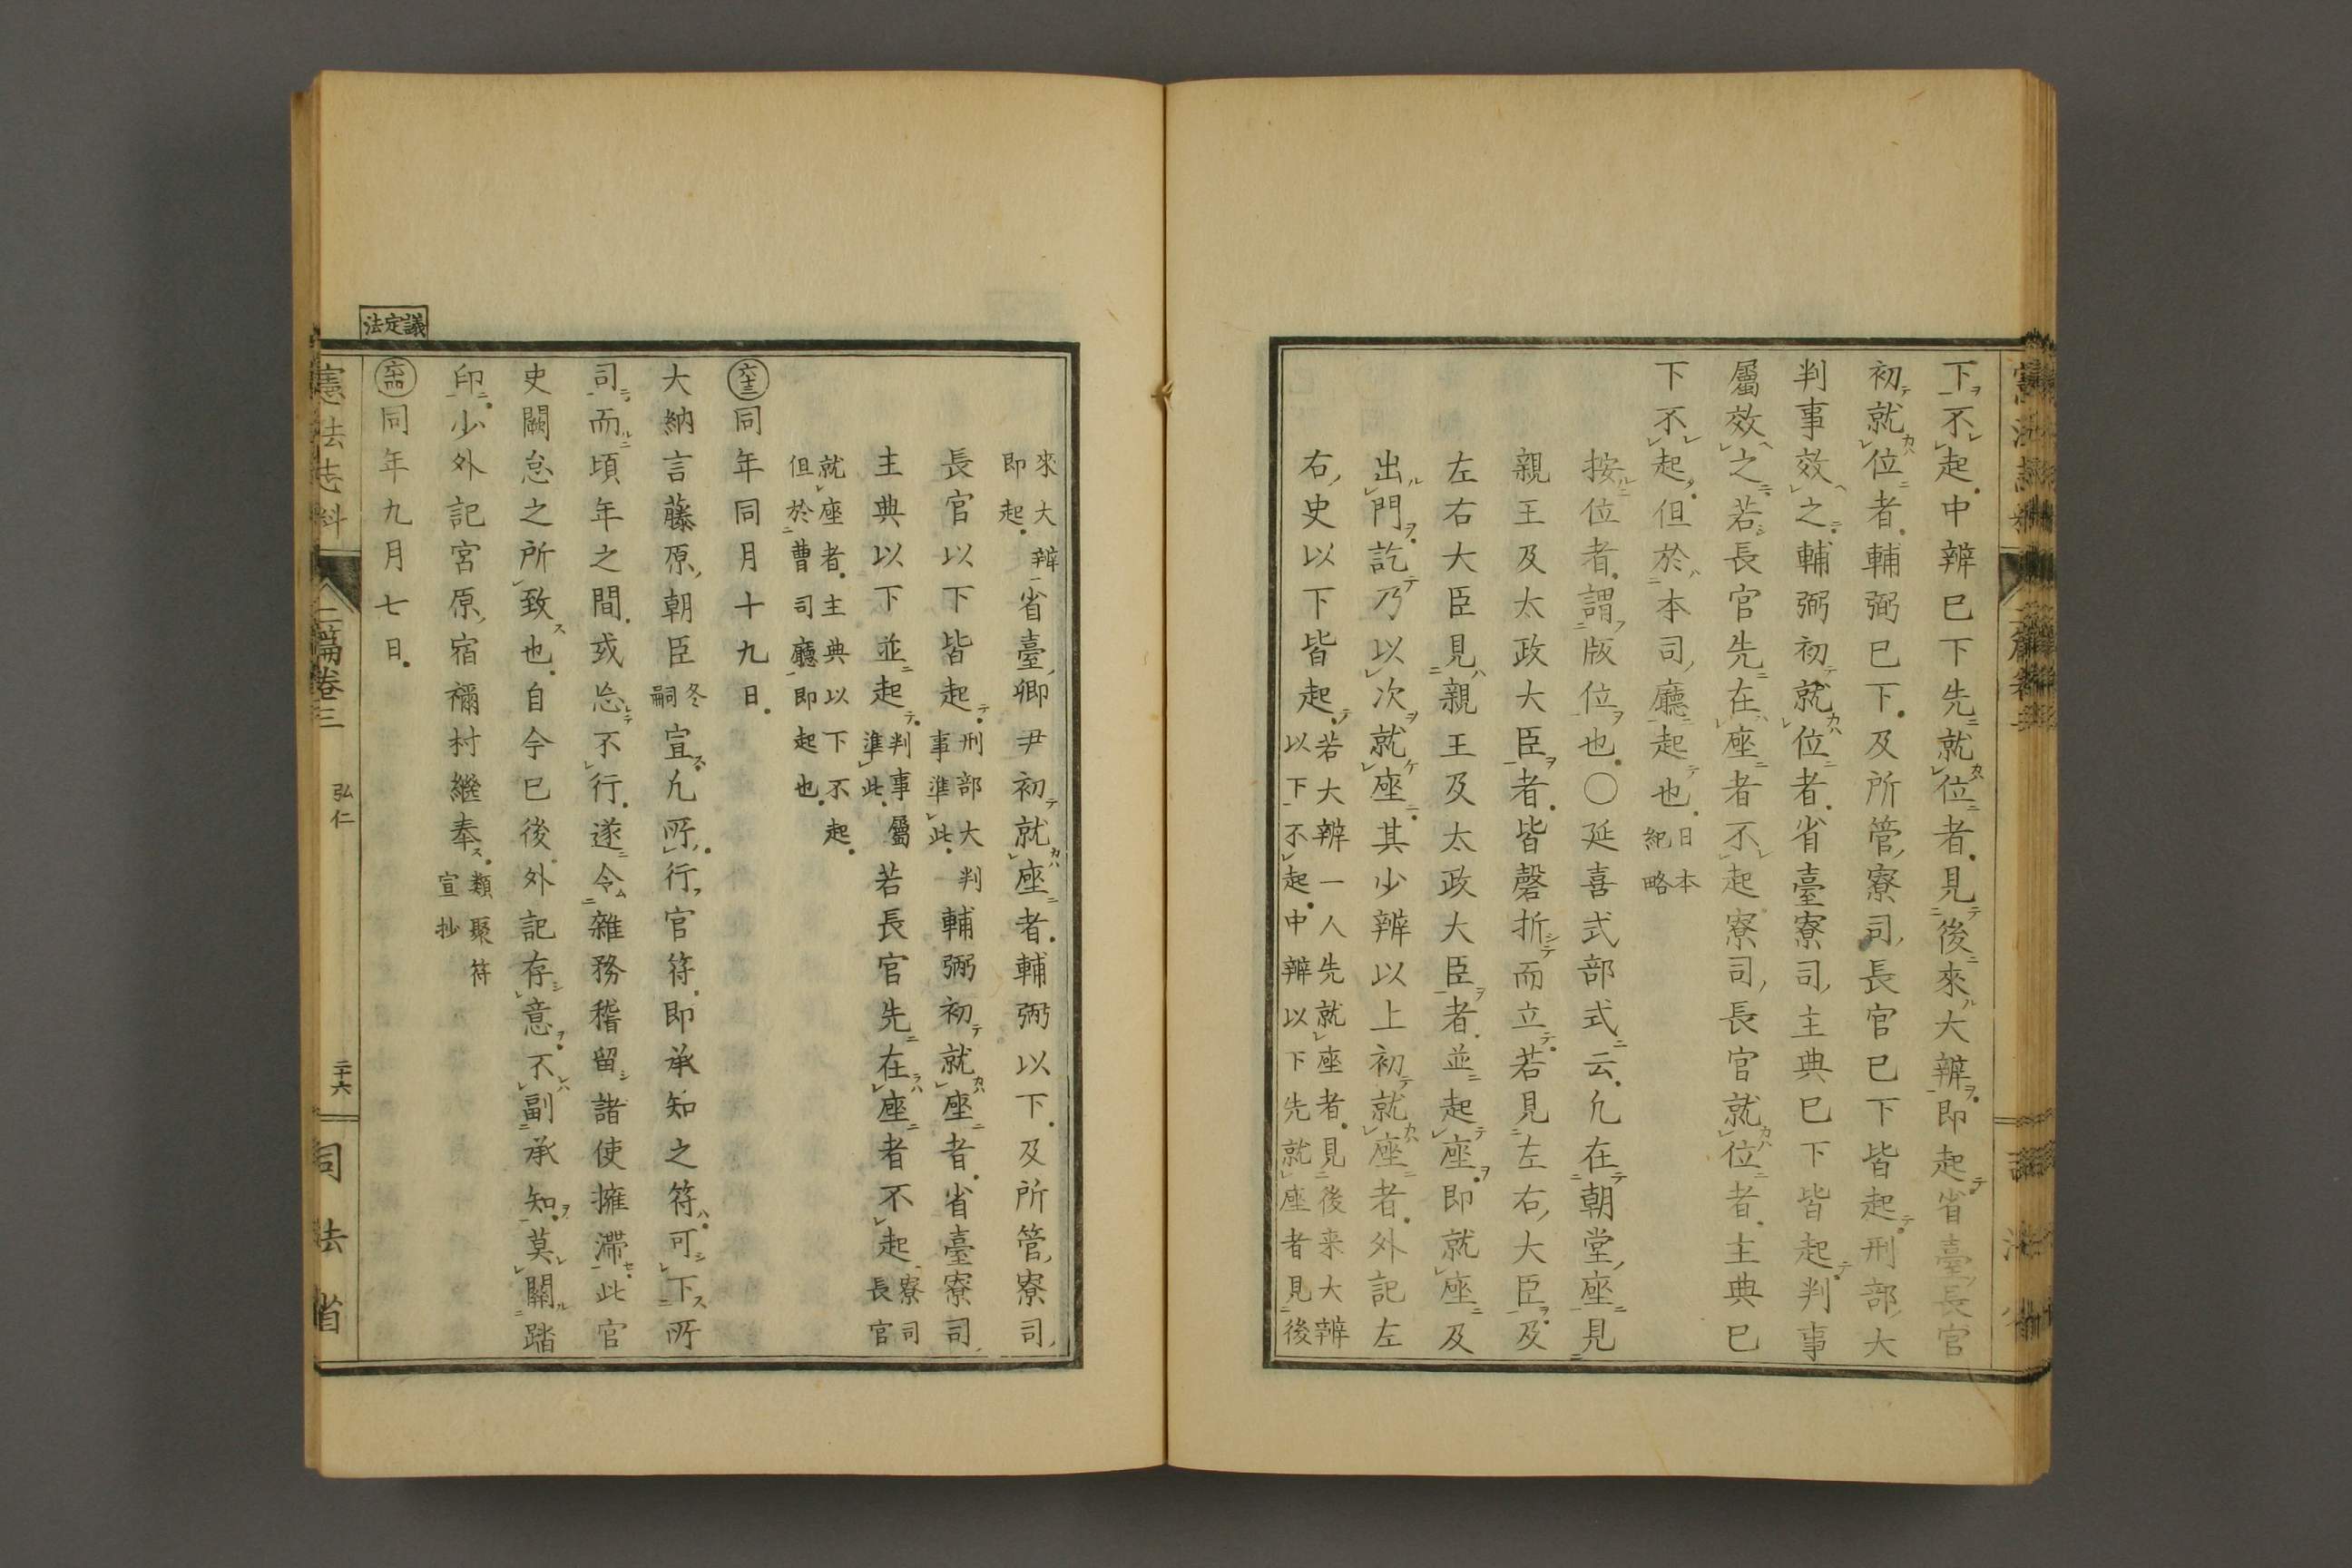 下不起中辨巳下先就位者見後來大辨即起省臺長官
初就位者輔弼巳下及所管寮司長官巳下皆起刑部大
判事效之輔弼初就位者省臺寮司主典巳下皆起判事
屬效之若長官先在座者不起寮司長官就位者主典巳
下不起但於本司廳起也日本紀略
按位者謂版位也〇延喜式部式云凢在朝堂座見
親王及太政大臣者皆磬折而立若見左右大臣及
左右大臣見親王及太政大臣者並起座即就座及
出門訖乃以次就座其少辨以上初就座者外記左
右史以下皆起若大辨一人先就座者見後来大辨
以下不起中辨以下先就座者見後
來大辨
即起省臺卿尹初就座者輔弼以下及所管寮司
長官以下皆起刑部大判事準此輔弼初就座者省臺寮司
主典以下並起判事屬準此若長官先在座者不起寮司長官
就座者主典以下不起
但於曹司廳即起也
六十三同年同月十九日
大納言藤原朝臣冬嗣宣凢所行官符即承知之符可下所
司而頃年之間或忘不行遂令雜務稽留諸使擁滯此官
史闕怠之所致也自今巳後外記存意不副承知莫關踏
印少外記宮原宿禰村繼奉類聚符宣抄
六十四同年九月七日
議定法
憲法志料
二篇卷三
弘仁
二十六
司法省